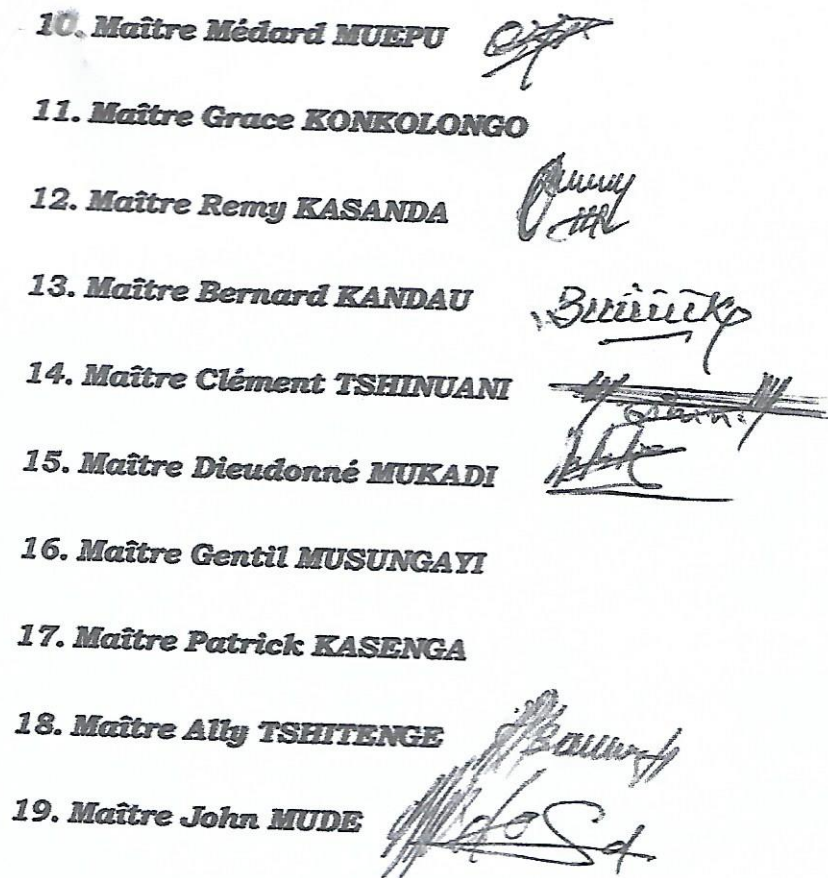 10. Maître Médard MUEPU
11. Maître Grace KONKOLONGO
12. Maître Remy KASANDA
13. Maître Bernard KANDAU
14. Maître Clément TSHINUANI
15. Maître Dieudonné MUKADI
16. Maître Gentil MUSUNGAYI
17. Maître Patrick KASENGA
18. Maître Ally TSHITENGE
19. Maître John MUDE